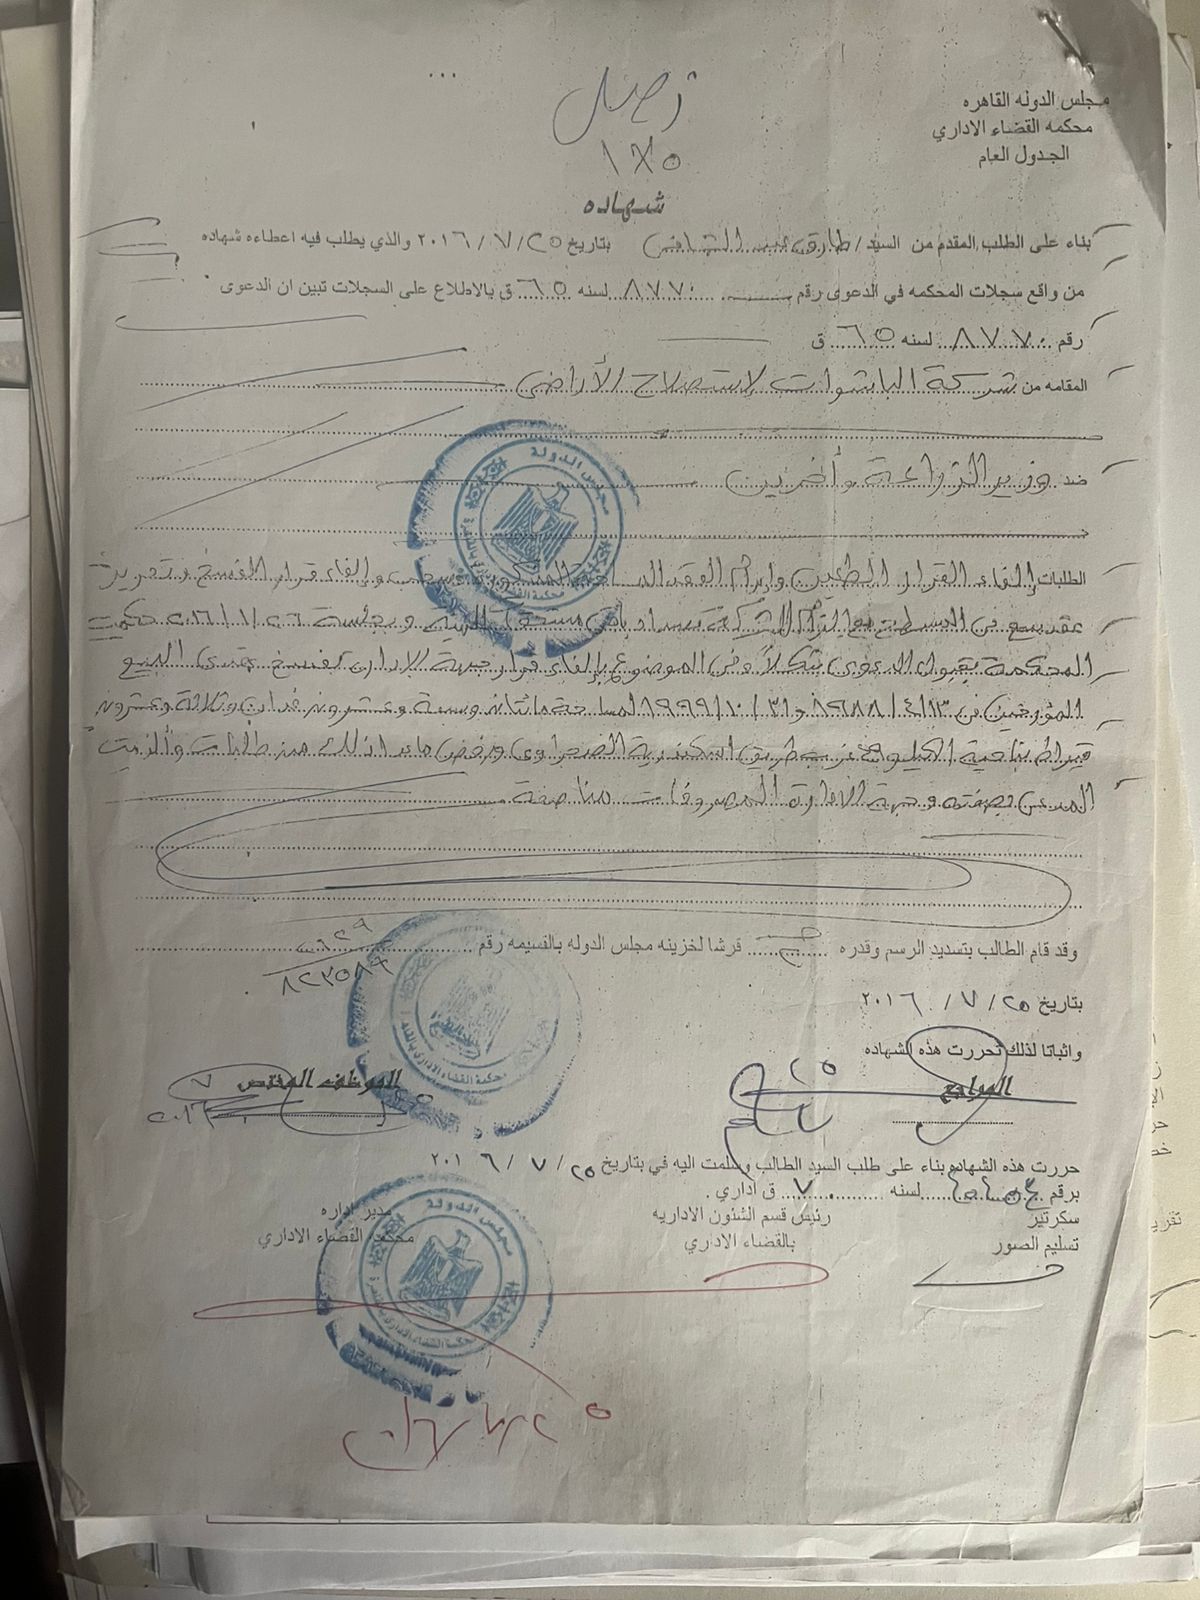 مجلس الدوله القاهره
محكمه القضاء الاداري
الجدول العام
شهاده
بناء على الطلب المقدم من السيد / طارق عبد بتاريخ ٢٥ / ٧ / ٢٠١٦ والذي يطلب فيه اعطاءه شهاده
من واقع سجلات المحكمه في الدعوى رقم ٨٧٧٠ لسنه ٦٥ ق بالاطلاع على السجلات تبين ان الدعوى
رقم ٨٧٧٠ لسنه ٦٥ ق
المقامه من شركة الباشوات لاستصلاح الأراضي
ضد وزير الزراعة وآخرين
الطلبات إلغاء القرار الطعين وإبرام العقد وإلغاء قرار الفسخ وتحرير
عقد بيع مع التزام الشركة بسداد باقي مستحقات وبجلسة ٢٦ / ١ / ٢٠١٦ حكمت
المحكمة بقبول الدعوى شكلاً وفي الموضوع بإلغاء قرار جهة الإدارة بفسخ عقدي البيع
المؤرخين في ١٣ / ٤ / ١٩٨٨ و ٣١ / ١٠ / ١٩٩٩ لمساحة مائتان وستة وعشرون فدان وثلاثة وعشرون
قيراط بناحية الكيلو غرب طريق اسكندرية الصحراوي ورفض ما عدا ذلك من طلبات وألزمت
المدعي بصفته وجهة الإدارة المصروفات مناصفة
وقد قام الطالب بتسديد الرسم وقدره قرشا لخزينه مجلس الدوله بالقسيمه رقم
بتاريخ ٢٥ / ٧ / ٢٠١٦
واثباتا لذلك تحررت هذه الشهاده
المراجع الموظف المختص
حررت هذه الشهاده بناء على طلب السيد الطالب وسلمت اليه في بتاريخ ٢٥ / ٧ / ٢٠١٦
برقم لسنه ٧٠ ق اداري .
سكرتير رئيس قسم الشئون الاداريه مدير اداره
تسليم الصور بالقضاء الاداري محكمه القضاء الاداري